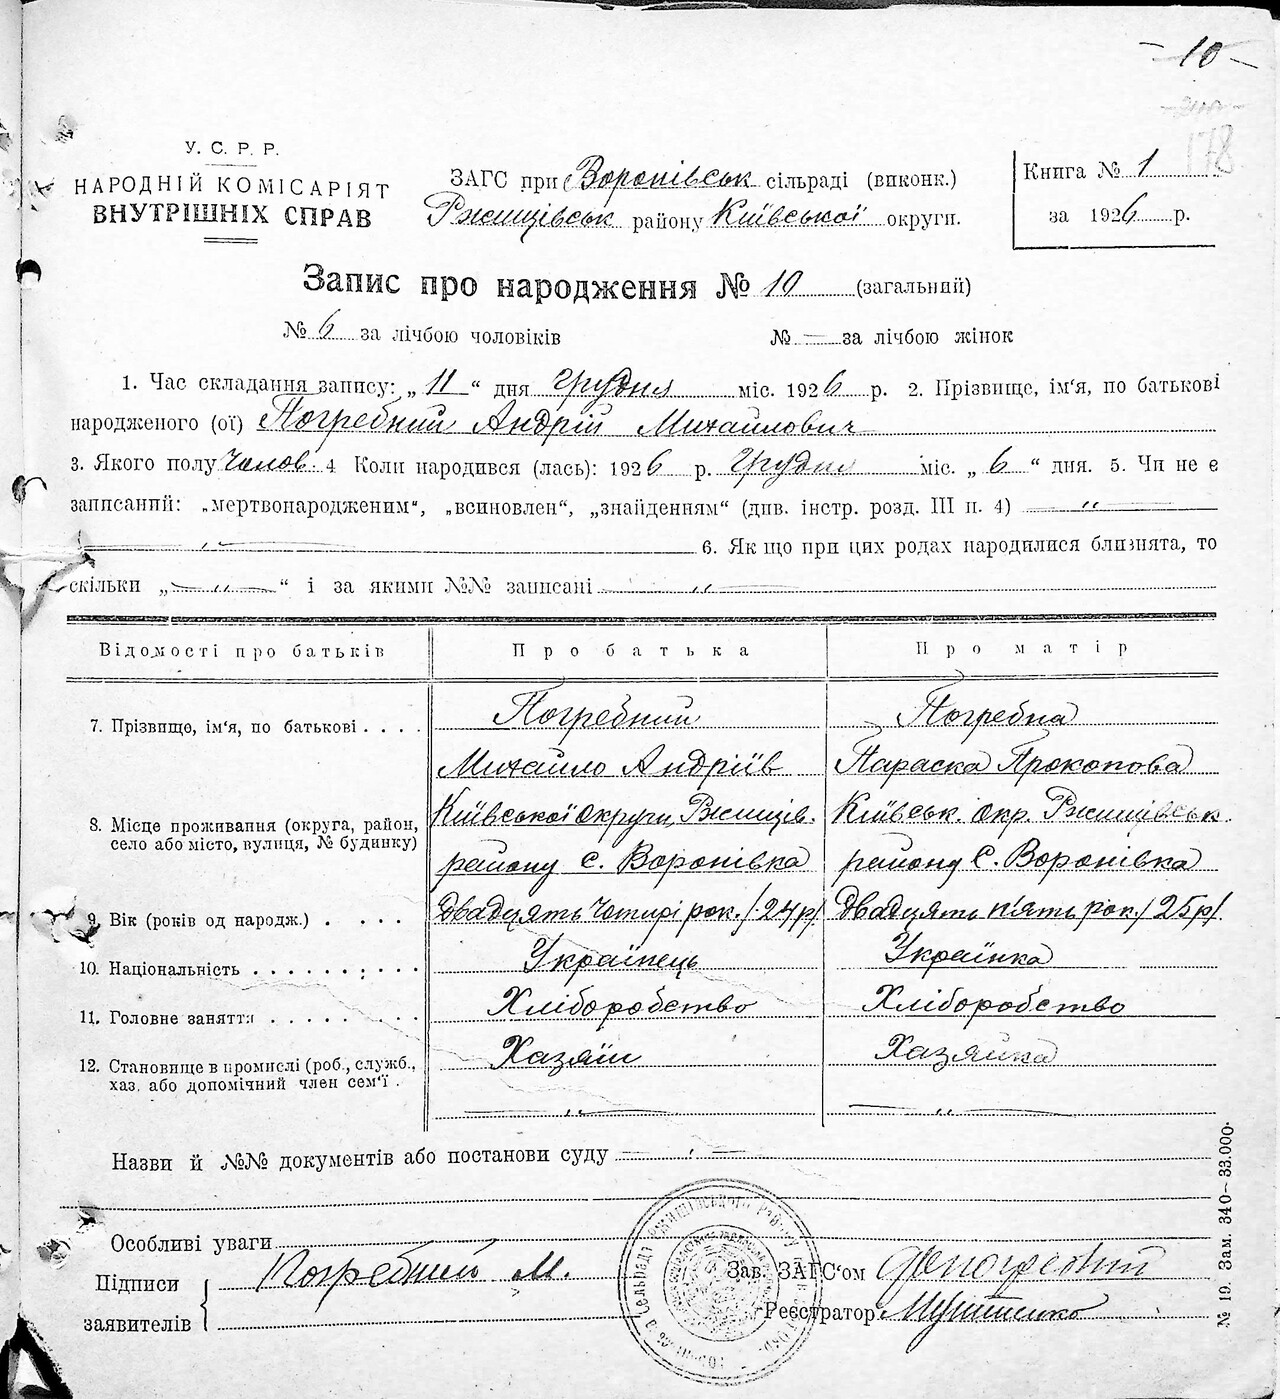 – 10 –
178
У. С. Р. Р.
НАРОДНІЙ КОМІСАРІЯТ
ВНУТРІШНІХ СПРАВ
ЗАГС при Воронівськ сільраді (виконк.)
Ржищівськ району Київської округи.
Книга № 1
за 1926 р.
Запис про народження № 10 (загальний)
№ 6 за лічбою чоловіків № — за лічбою жінок
1. Час складання запису: „ 11 “ дня грудня міс. 1926 р. 2. Прізвище, ім‘я, по батькові
народженого (ої) Погребний Андрій Михайлович
3. Якого полу Чолов. 4 Коли народився (лась): 1926 р. грудня міс. „ 6 “ дня. 5. Чи не є
записаний: „мертвонародженим“, „всиновлен“, „знайденням“ (див. інстр. розд. III п. 4) — „ —
— „ — 6. Як що при цих родах народилися близнята, то
скільки „— „ —“ і за якими №№ записані — „ —
Відомості про батьків Про батька Про матір
7. Прізвище, ім‘я, по батькові . . . . Погребний Погребна
Михайло Андріїв Параска Прокопова
8. Місце проживання (округа, район, Київської округи, Ржищів. Київськ. окр. Ржищівськ.
село або місто, вулиця, № будинку) району с. Воронівка району С. Воронівка
9. Вік (років од народж.) . . . . Двадцять Чотирі рок. /24р/. Двадцять п'ять рок. /25р/.
10. Національність . . . . . . . . . Українець Українка
11. Головне заняття . . . . . . . . Хліборобство Хліборобство
12. Становище в промислі (роб., служб., Хазяїн Хазяйка
хаз. або допомічний член сем‘ї . — „ — — „ —
Назви й №№ документів або постанови суду —
Особливі уваги
Підписи
заявителів
Погребний М.
Зав. ЗАГС‘ом
Реєстратор
№ 19. Зам. 340–33.000.